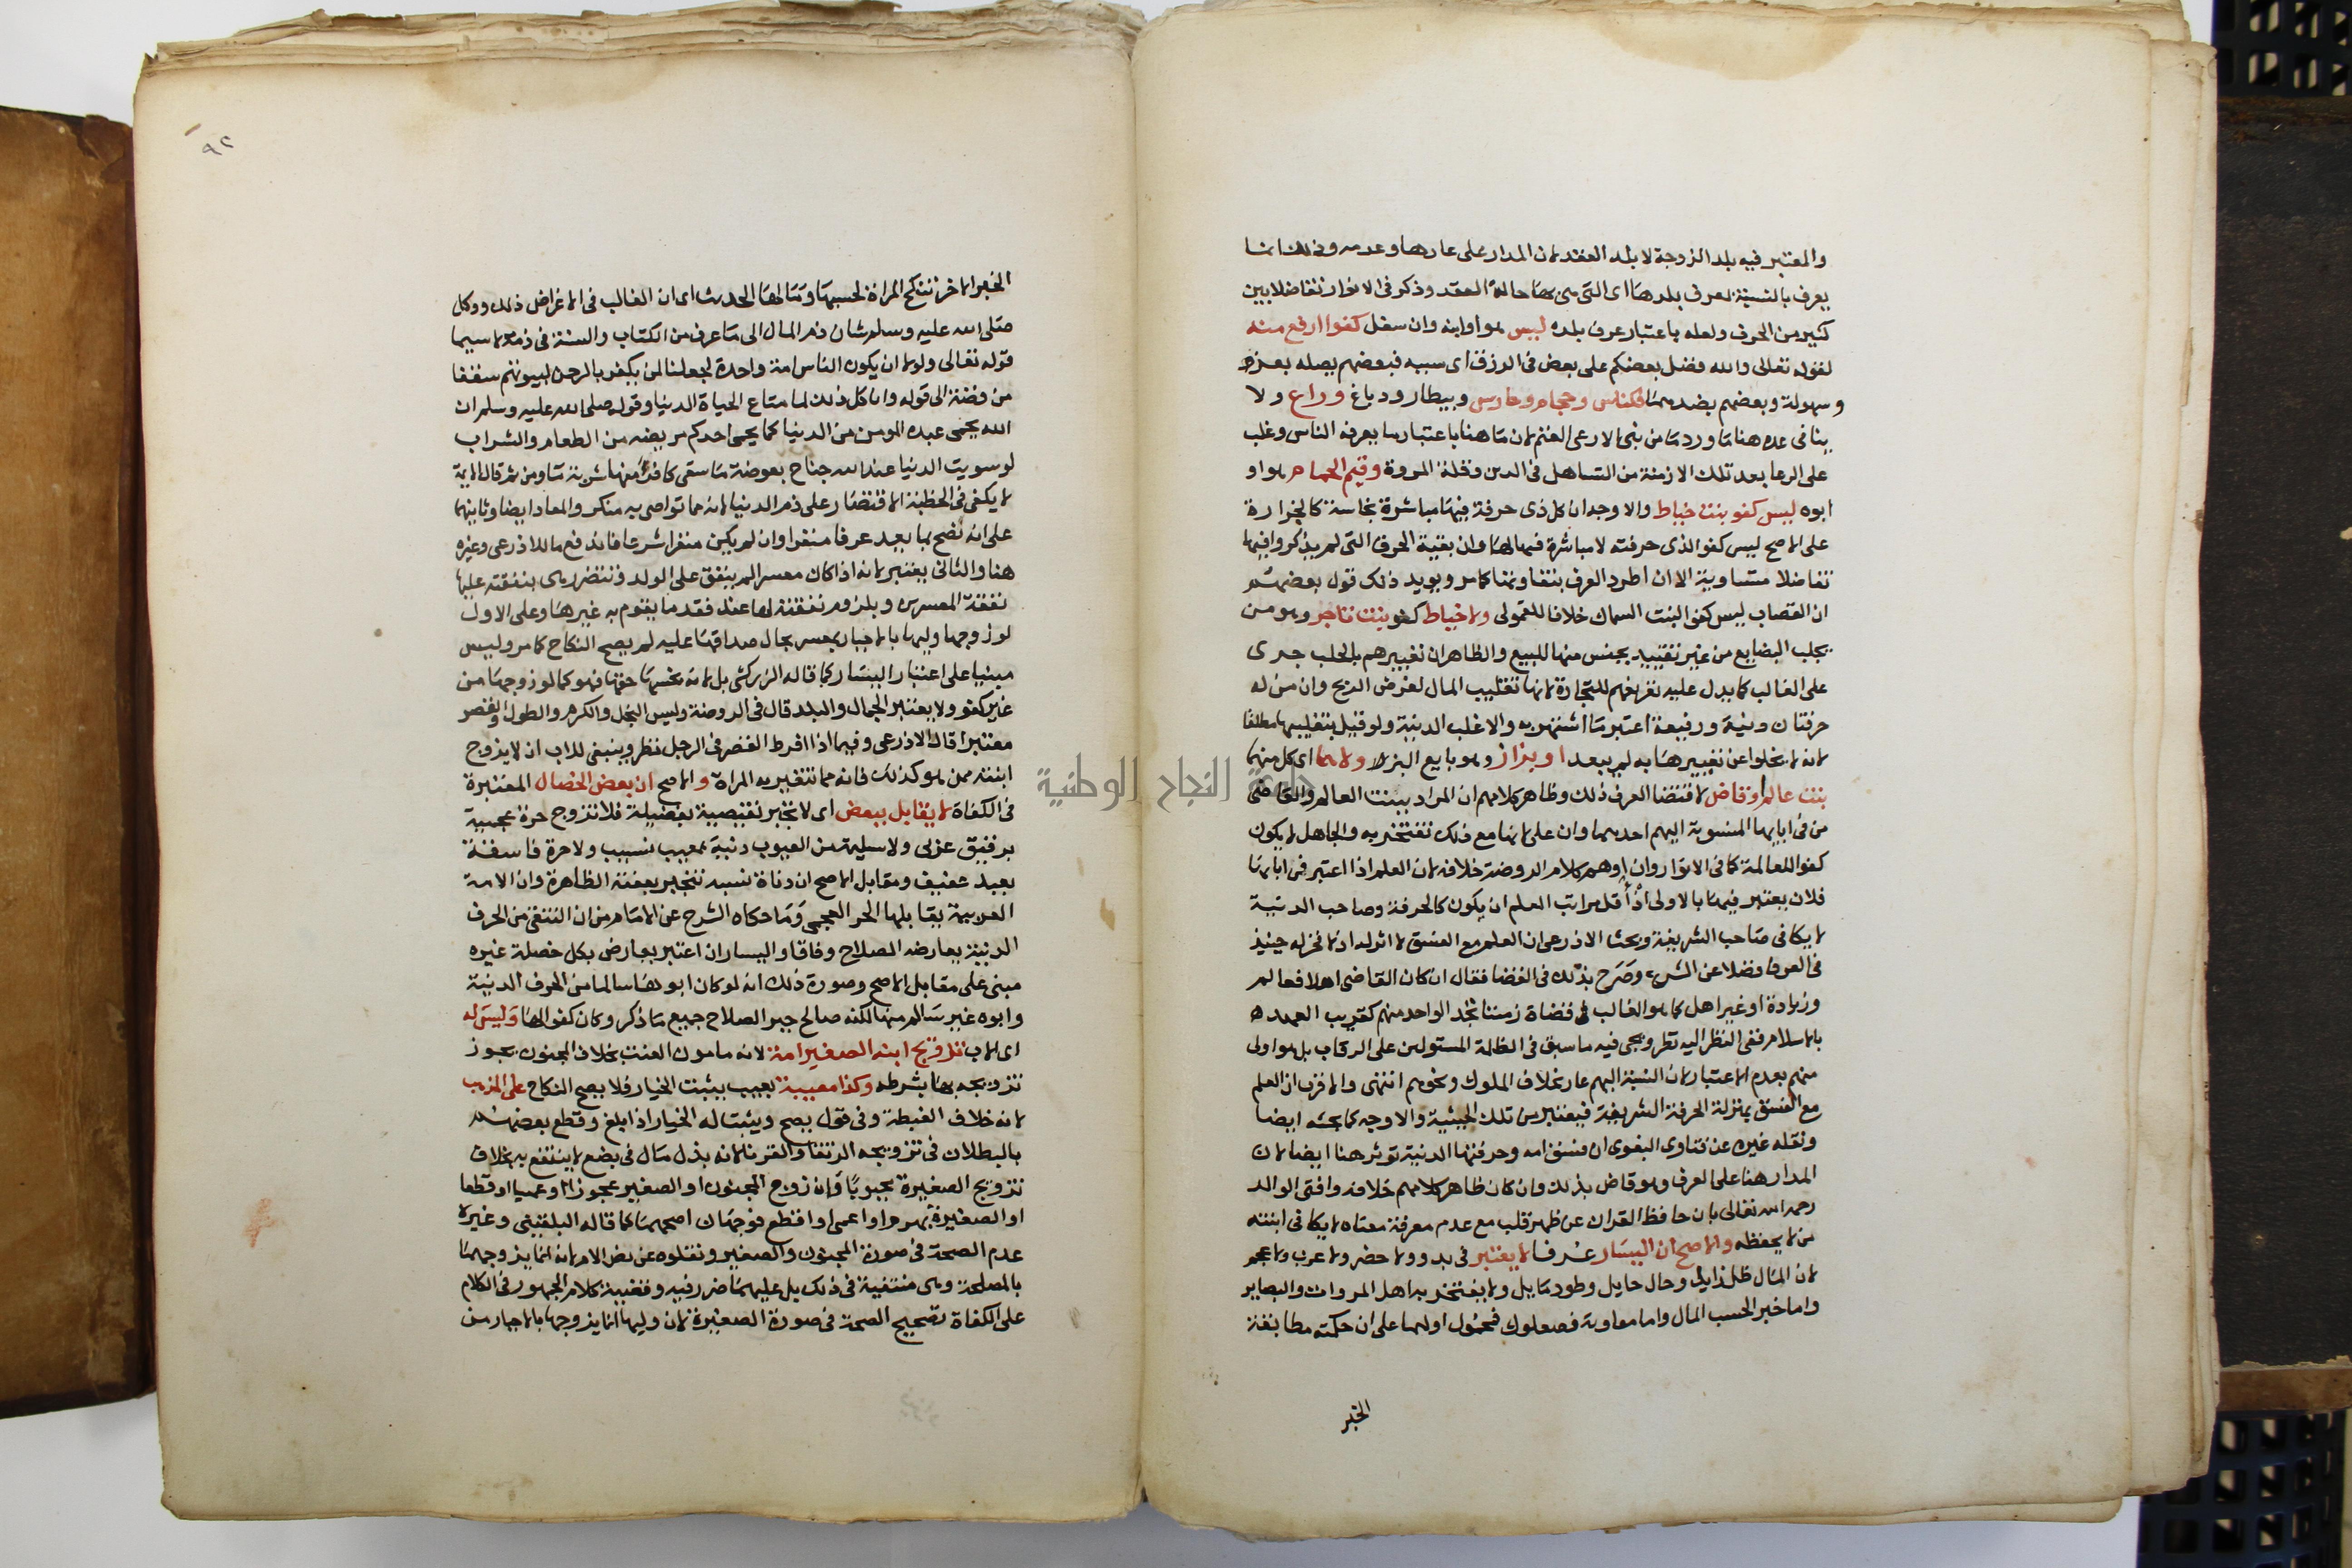 والمعتبر فيه بلد الزوجة لا بلد العقد لان المدار على عارها وعدمه وذلك انما
يعرف بالنسبة لعرف بلدها اى التى هى بها حالة العقد وذكر فى الانوار تفاضلا بين
كثير من الحرف ولعله باعتبار عرف بلده ليس هو او ابنه وان سفل كفوا ارفع منه
لقوله تعالى والله فضل بعضكم على بعض فى الرزق اى سببه فبعضهم يصله بعز
وسهولة وبعضهم بضدهما فكناس وحجام وحارس وبيطار ودباغ وراع ولا
ينافى عده هنا ما ورد ما من نبى الا رعى الغنم لان ما هنا باعتبار ما يعرفه الناس وغلب
على الرعا بعد تلك الازمنة من التساهل فى الدين وقلة المروة وقيم الحمام هو او
ابوه ليس كفو بنت خياط والاوجه ان كل ذى حرفة فيها مباشرة نجاسة كالجزارة
على الاصح ليس كفو الذى حرفته لا مباشرة فيها لها وان بقية الحرف التى لم يذكروا فيها
تفاضلا متساوية الا ان اطرد العرف بتفاوتها كما مر ويويد ذلك قول بعضهم
ان القصاب ليس كفو البنت السماك خلافا للقمولى ولا خياط كفو بنت تاجر وهو من
يجلب البضايع من غير تقييد بجنس منها للبيع والظاهر ان تعبيرهم بالجلب جرى
على الغالب كما يدل عليه تعريفهم للتجارة بانها تقليب المال لغرض الربح وان من له
حرفتان دنية ورفيعة اعتبر ما اشتهر به والا غلب الدنية ولو قيل بتغليبها مطلقا
لانه لا يخلوا عن تعييرها به لم يبعد او بزاز وهو بايع البز ولا هما اى كل منهما
بنت عالم او قاض لاقتضا العرف ذلك وظاهر كلامهم ان المراد ببنت العالم والقاضى
من فى ابايها المنسوبة اليهم احدهما وان علا لانها مع ذلك تفتخر به والجاهل لا يكون
كفو اللعالمة كما فى الانوار وان اوهم كلام الروضة خلافه لان العلم اذا اعتبر فى ابايها
فلان يعتبر فيها بالاولى اذ اقل مراتب العلم ان يكون كالحرفة وصاحب الدنية
لا يكافى صاحب الشريفة وبحث الاذرعى ان العلم مع الفسق لا اثر له اذ لا فخر له حينئذ
فى العرف فضلا عن الشرع وصرح بذلك فى القضا فقال ان كان القاضى اهلا فعالم
وزيادة او غير اهل كما هو الغالب فى قضاة زمننا تجد الواحد منهم كقريب العهد
بالاسلام ففى النظر اليه نظر ويجى فيه ما سبق فى الظلمة المستولين على الرقاب بل هو اولى
منهم بعدم الاعتبار لان النسبة اليهم عار بخلاف الملوك ونحوهم انتهى والاقرب ان العلم
مع الفسق بمنزلة الحرفة الشريفة فيعتبر من تلك الحيثية والاوجه كما بحثه ايضا
ونقله غيره عن فتاوى البغوى ان فسق امه وحرفتها الدنية توثر هنا ايضا لان
المدار هنا على العرف وهو قاض بذلك وان كان ظاهر كلامهم خلافه وافتى الوالد
رحمه الله تعالى بان حافظ القران عن ظهر قلب مع عدم معرفة معناه لا يكافى ابنته
من لا يحفظه والاصح ان اليسار عرفا لا يعتبر فى بدو ولا حضر ولا عرب ولا عجم
لان المال ظل زايل وحال حايل وطود مايل ولا يفتخر به اهل المروات والبصاير
واما خبر الحسب المال واما معاوية فصعلوك فمحمول اولهما على ان حكته مطابقة
الخبر
٩٢
الخبر الاخر تنكح المراة لحسبها ومالها الحديث اى ان الغالب فى الاغراض ذلك ووكل
صلى الله عليه وسلم شان ذم المال الى ما عرف من الكتاب والسنة فى ذمه لا سيما
قوله تعالى ولولا ان يكون الناس امة واحدة لجعلنا لمن يكفر بالرحمن لبيوتهم سقفا
من فضة الى قوله وان كل ذلك لما متاع الحياة الدنيا وقوله صلى الله عليه وسلم ان
الله يحمى عبده المومن من الدنيا كما يحمى احدكم مريضه من الطعام والشراب
لو سويت الدنيا عند الله جناح بعوضة ما سقى كافرا منها شربة ما ومن ثم قال الايمة
لا يكفى فى الخطبة الاقتصار على ذم الدنيا لانه مما تواصى به منكرو المعاد ايضا وثانيهما
على انه نصح بما يعد عرفا منفرا وان لم يكن منفرا شرعا فاندفع ما للاذرعى وغيره
هنا والثانى يعتبر لانه اذا كان معسرا لم ينفق على الولد وتتضرر هى بنفقته عليها
نفقة المعسرين وبلزوم نفقته لها عند فقد ما يقوم به غيرها وعلى الاول
لو زوجها وليها بالاجبار بمعسر بحال صداقها عليه لم يصح النكاح كما مر وليس
مبنيا على اعتبار اليسار كما قاله الزركشى بل لانه بخسها حقها فهو كما لو زوجها من
غير كفو ولا يعتبر الجمال والبلد قال فى الروضة وليس البخل والكرم والطول والقصر
معتبرا قال الاذرعى وفيما اذا افرط القصر فى الرجل نظر وينبغى للاب ان لا يزوج
ابنته ممن هو كذلك فانه مما تتعير به المراة والاصح ان بعض الخصال المعتبرة
فى الكفاة لا يقابل ببعض اى لا تجبر نقيصة بفضيلة فلا تزوج حرة عجمية
برقيق عربى ولا سليمة من العيوب دنية بمعيب نسيب ولا حرة فاسقة
بعبد عفيف ومقابل الاصح ان دناة نسبه تنجبر بعفته الظاهرة وان الامة
العربية يقابلها الحر العجمى وما حكاه الشرح عن الامام من ان التنقى من الحرف
الدنية يعارضه الصلاح وفاقا واليسار ان اعتبر يعارض بكل خصلة غيره
مبنى على مقابل الاصح وصورة ذلك انه لو كان ابوها سالما من الحرف الدنية
وابوه غير سالم منها لكنه صالح جبر الصلاح جميع ما ذكر وكان كفو الها وليس له
اى للاب تزويج ابنه الصغير امة لانه مامون العنت بخلاف المجنون يجوز
تزويجه بها بشرطه وكذا معيبة بعيب يثبت الخيار فلا يصح النكاح على المذهب
لانه خلاف الغبطة وفى قول يصح ويثبت له الخيار اذا بلغ وقطع بعضهم
بالبطلان فى تزويجه الرتقا والقرنا لانه بذل مال فى بضع لا ينتفع به بخلاف
تزويج الصغيرة مجبوبا وان زوج المجنون او الصغير عجوزا او عميا او قطعا
او الصغيرة بهرم او اعمى او اقطع فوجهان اصحهما كما قاله البلقينى وغيره
عدم الصحة فى صورة المجنون والصغير ونقلوه عن نص الام لانه انما يزوجهما
بالمصلحة وهى منتفية فى ذلك بل عليهما ضرر فيه وقضية كلام الجمهور فى الكلام
على الكفاة تصحيح الصحة فى صورة الصغيرة لان وليها انما يزوجها بالاجبار من
جامعة النجاح الوطنية